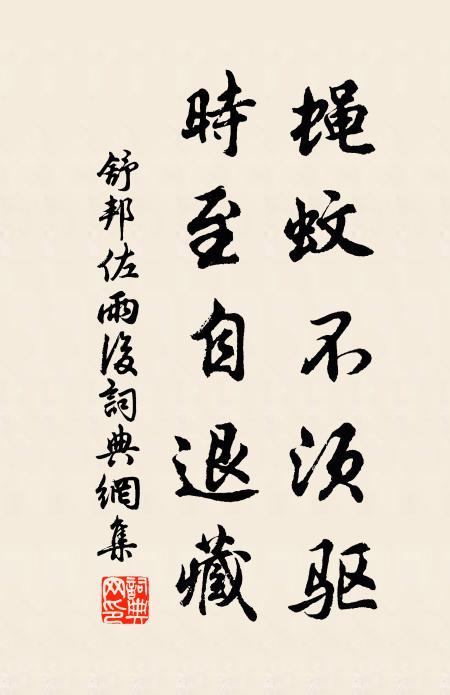 蝇蚊不须驱
時至自退藏
舒邦佐雨後詞典網集
詞典網印